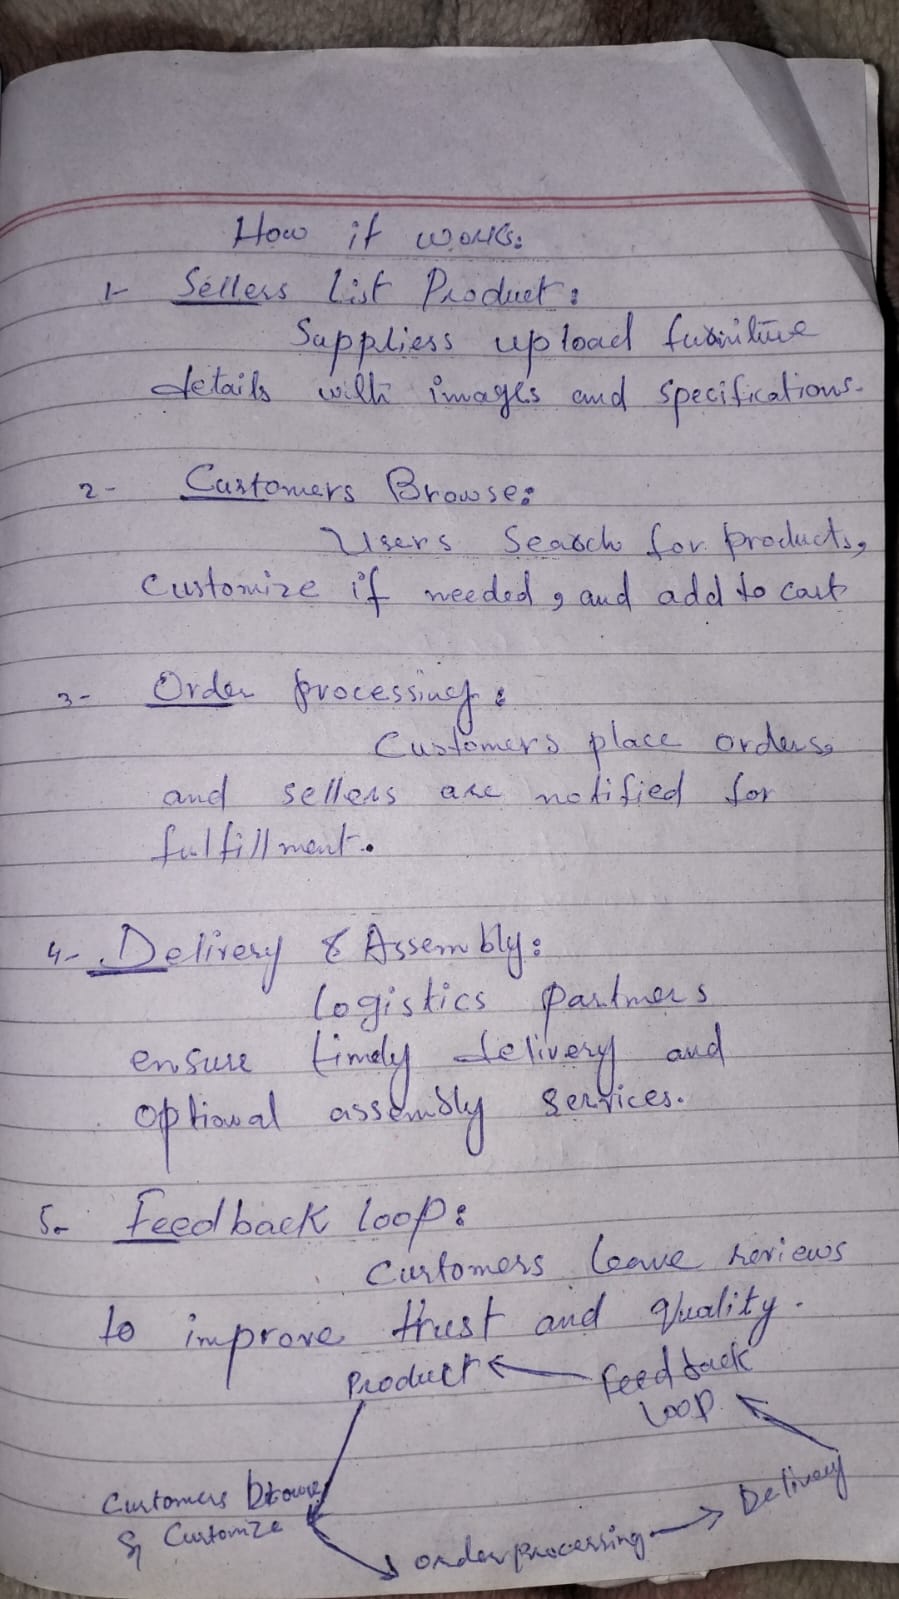 How it works:
1- Sellers List Product:
Suppliess upload furniture
details with images and specifications.
2- Customers Browse:
Users Search for products,
Customize if needed, and add to cart
3- Order processing:
Customers place orders,
and sellers are notified for
fulfillment.
4- Delivery & Assembly:
Logistics partners
ensure timely delivery and
optional assembly services.
5- Feedback loop:
Customers leave reviews
to improve trust and quality.
Product
Feedback
Loop
Customers browse
& Customize
Delivery
order processing